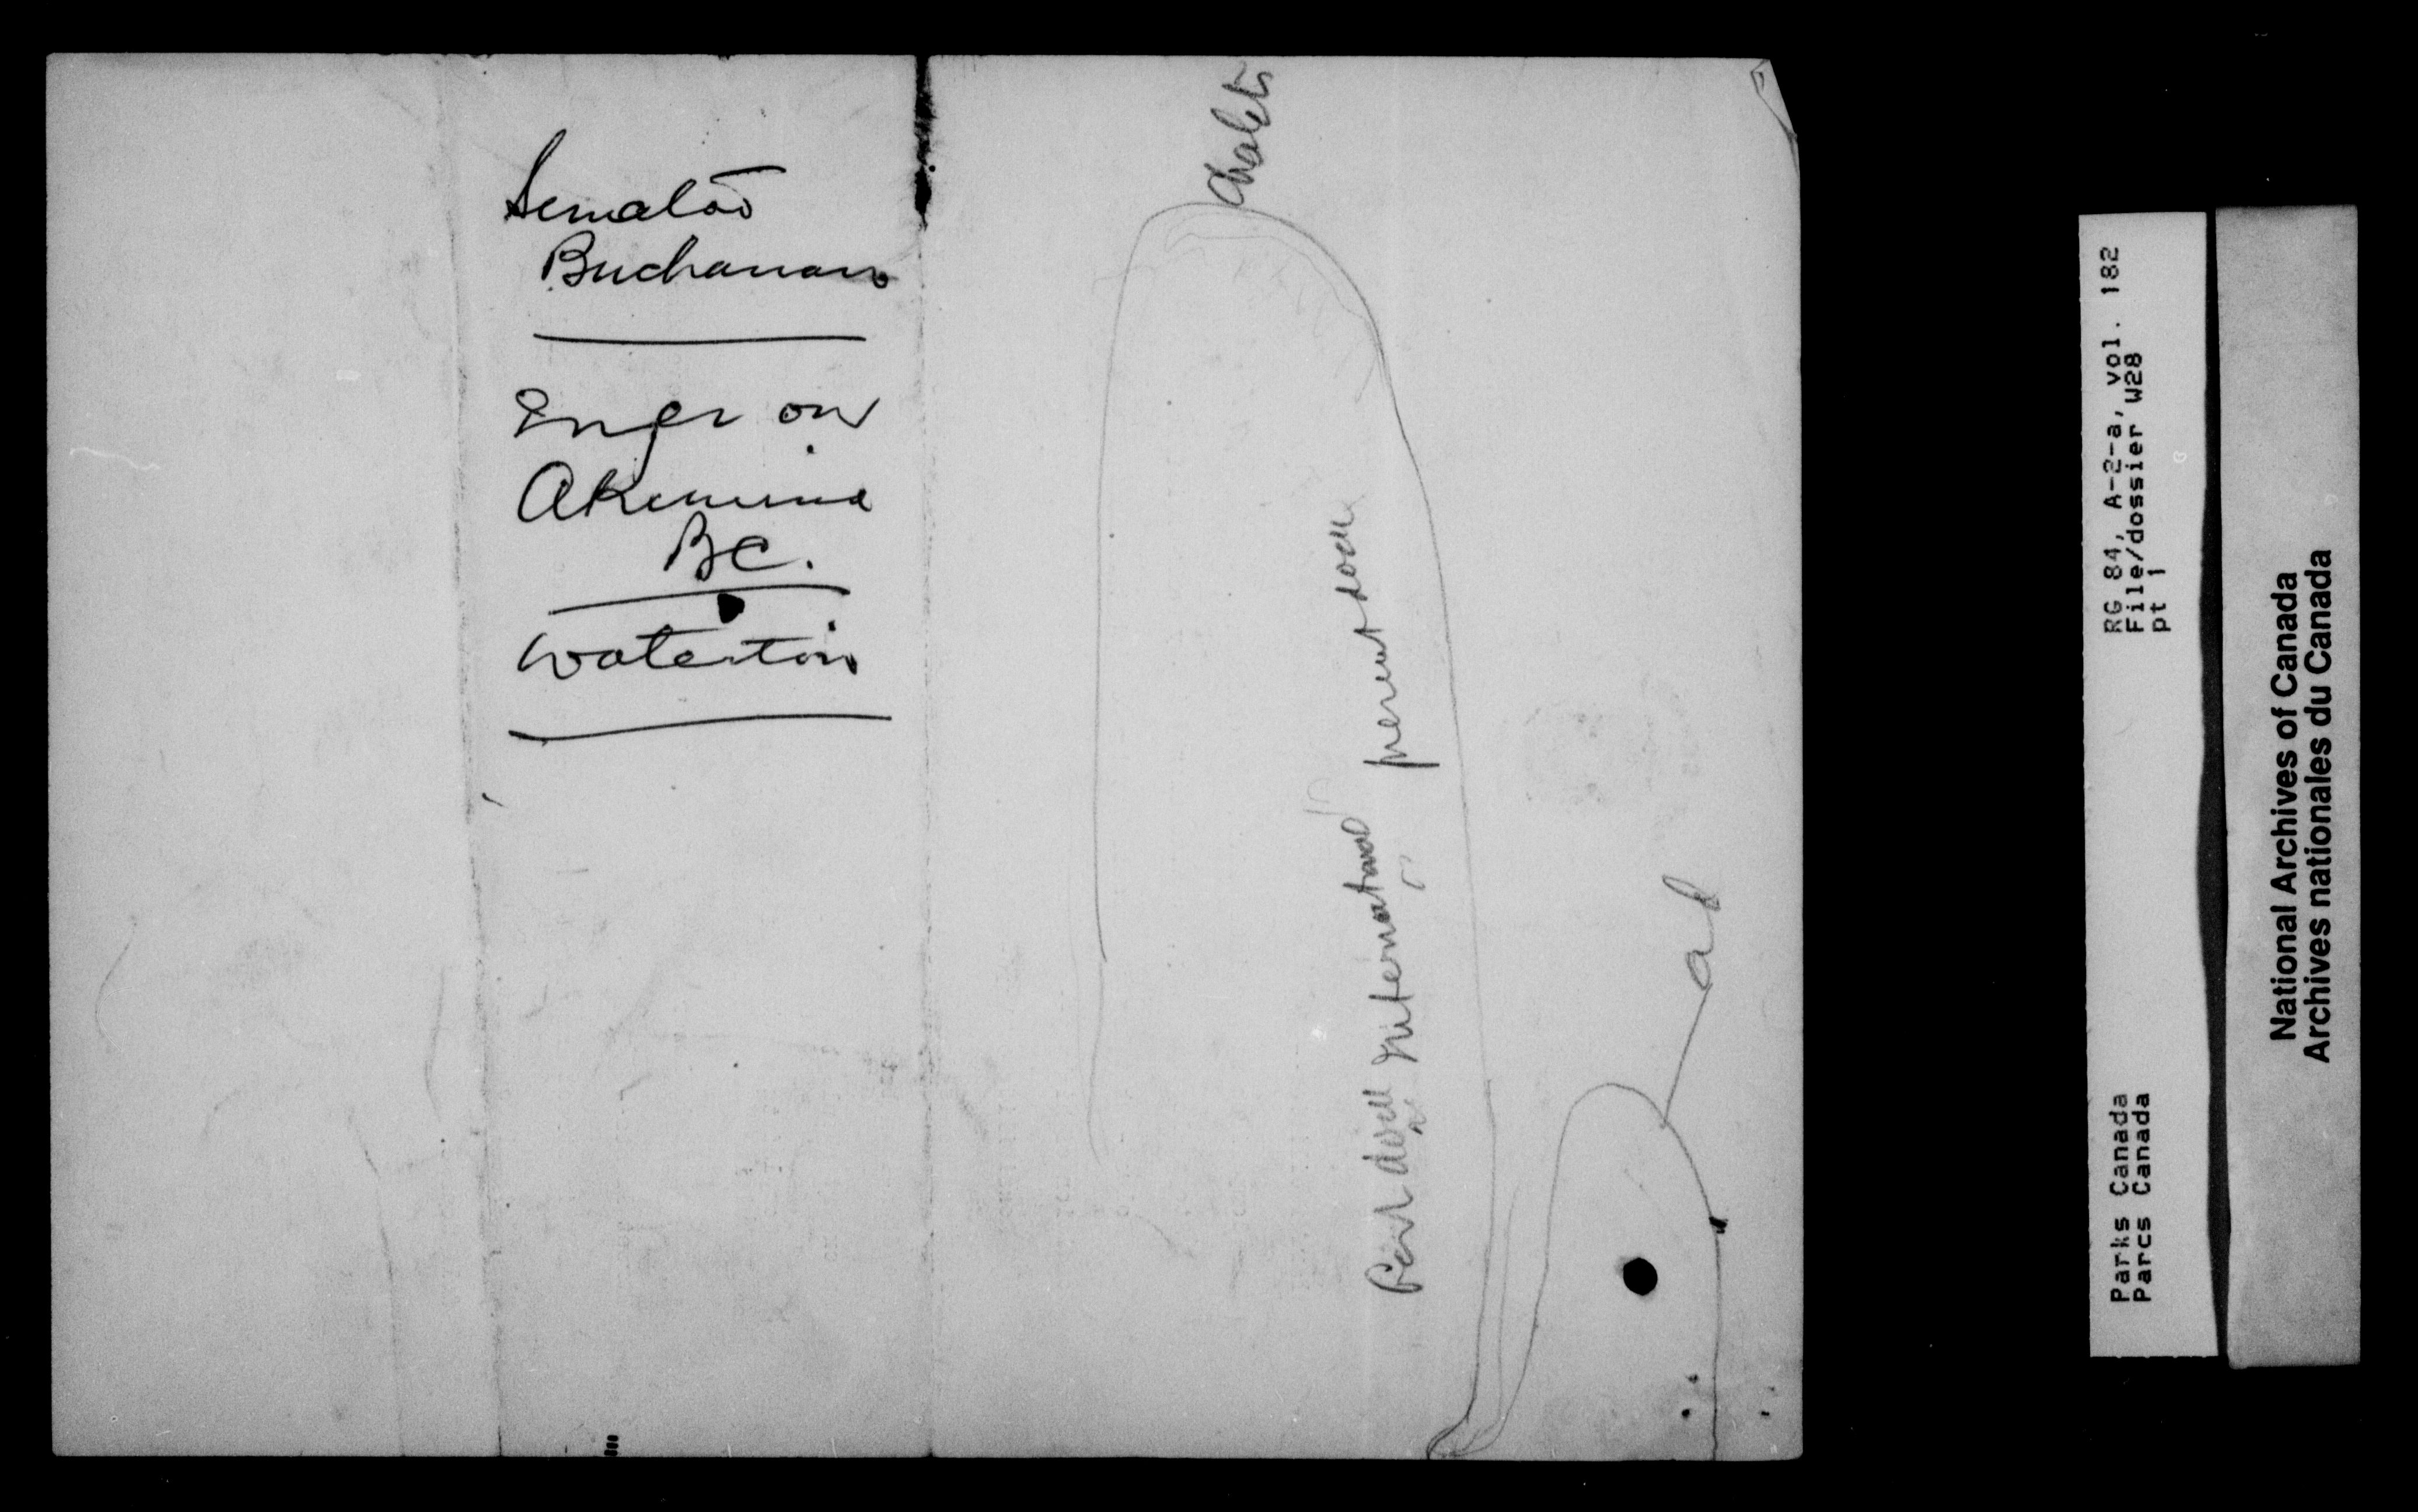 Senator
Buchanan
Engr on
Akamina
BC.
Waterton
Chalets
present
International
RG 84, A-2-a, vol. 182
File/dossier W28
pt 1
Parks Canada
Parcs Canada
National Archives of Canada
Archives nationales du Canada